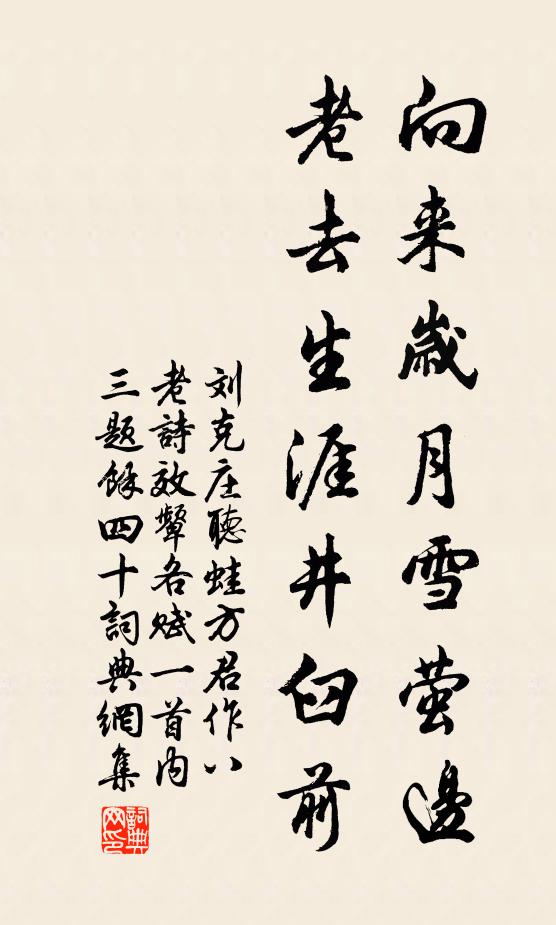 向来歲月雪萤邊
老去生涯井臼前
刘克庄聽蛙方君作八
老詩效顰各赋一首内
三题餘四十詞典網集
詞典
网印